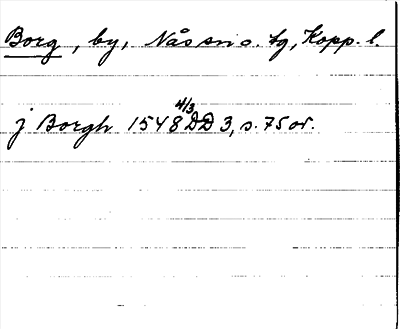 Borg, by, Nås sn o. tg, Kopp. l.
j Borgh 1548 4/3 DD 3, s. 75 or.